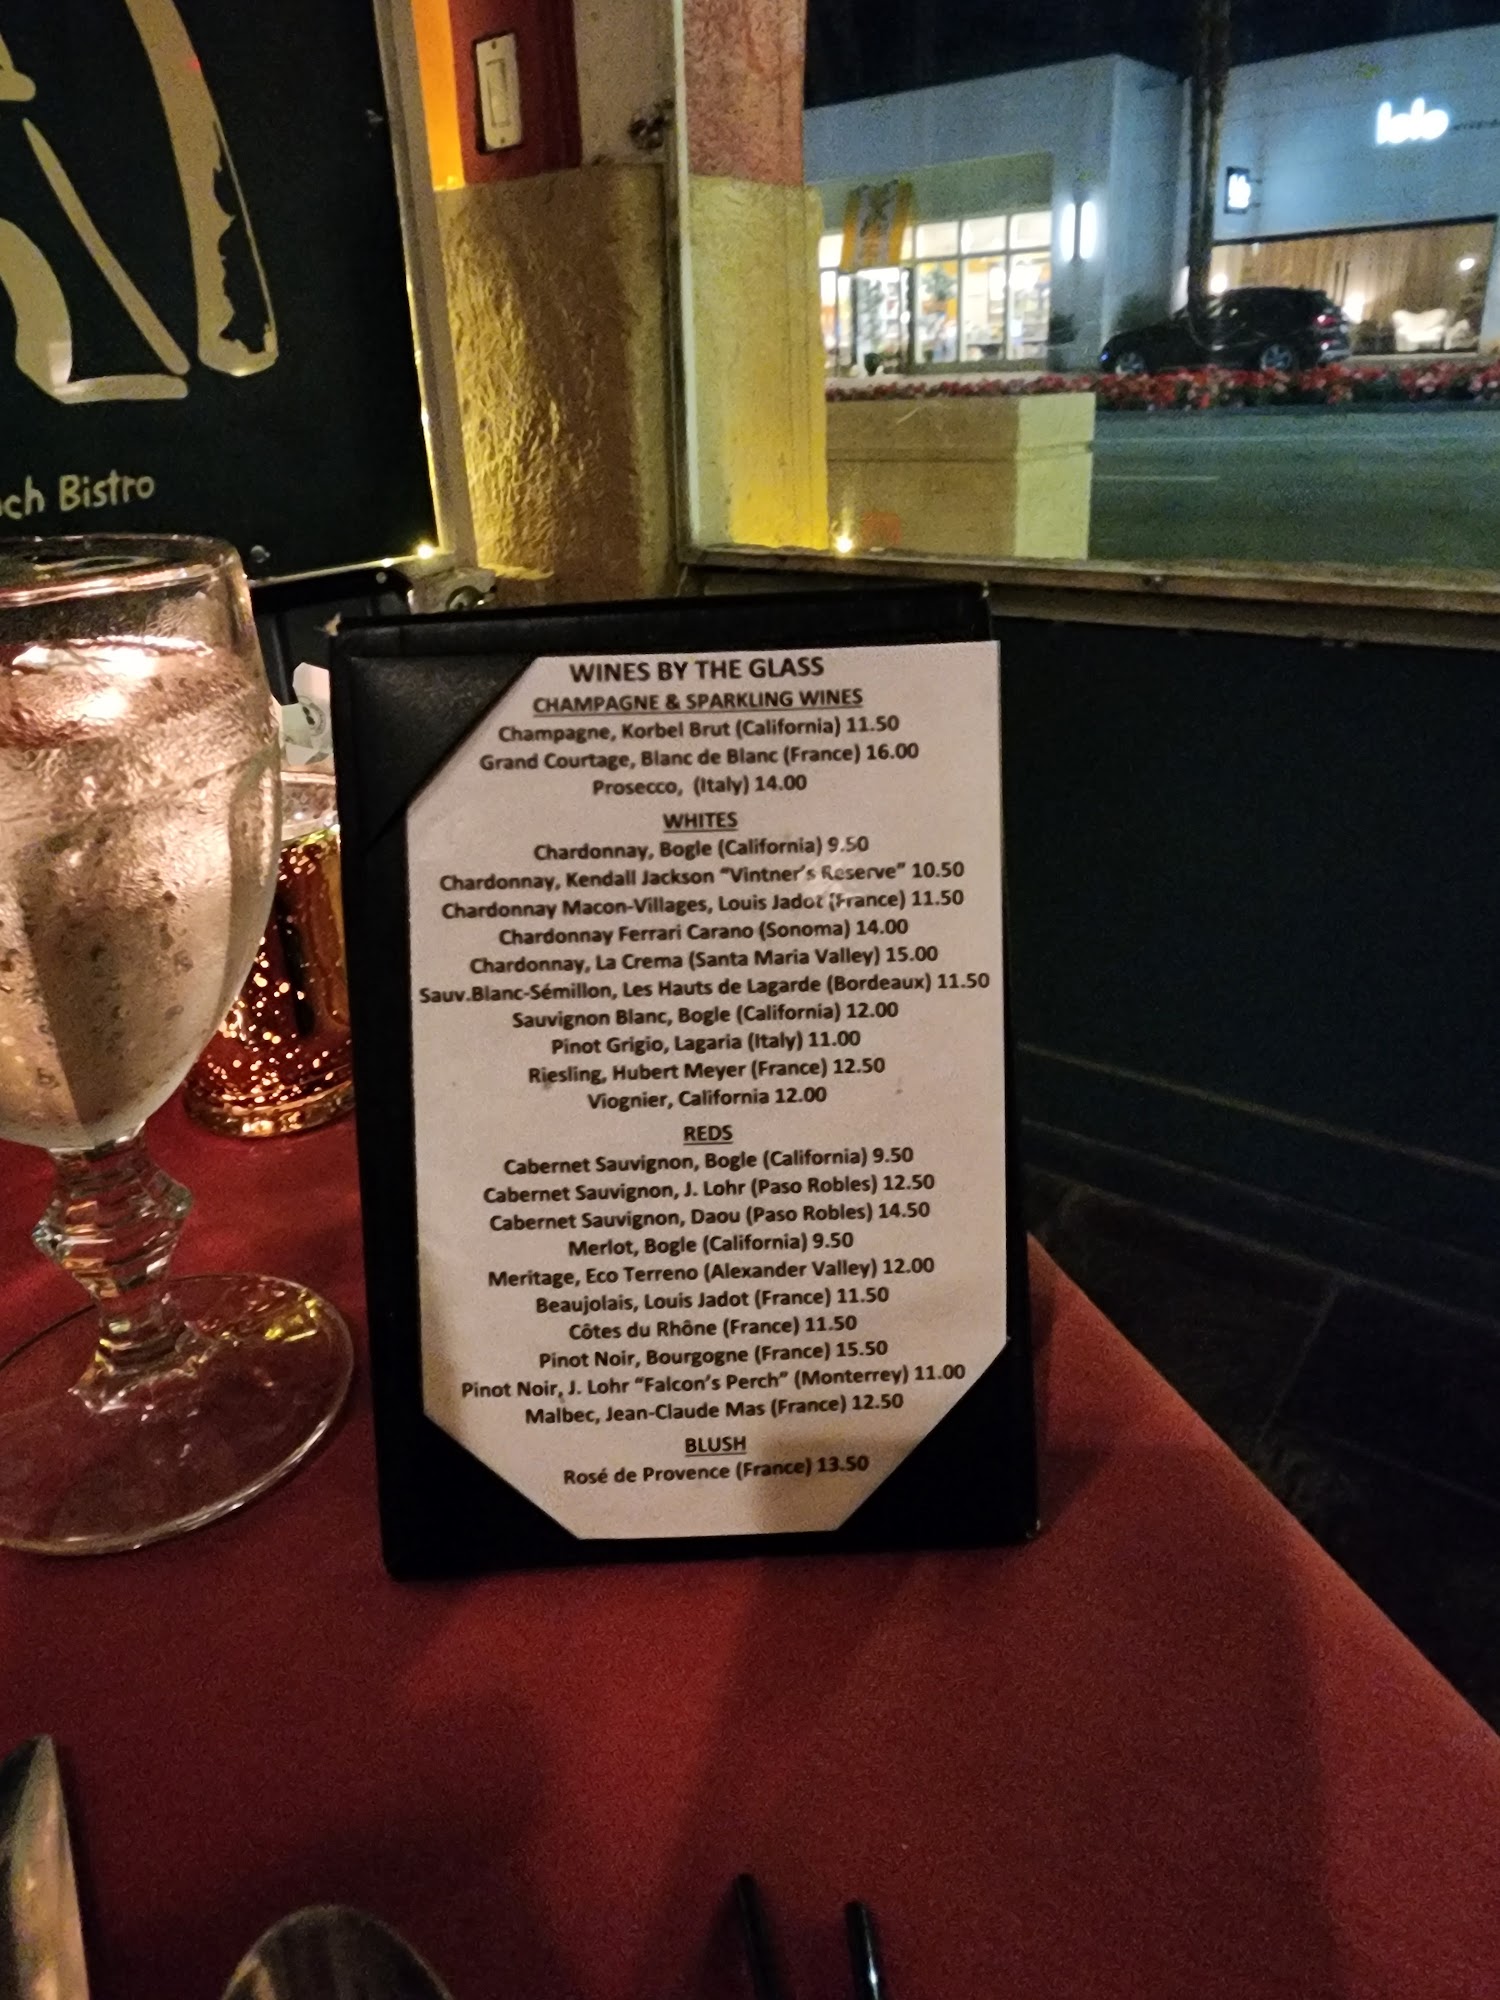 lolo
Bistro
WINES BY THE GLASS
CHAMPAGNE & SPARKLING WINES
Champagne, Korbel Brut (California) 11.50
Grand Courtage, Blanc de Blanc (France) 16.00
Prosecco, (Italy) 14.00
WHITES
Chardonnay, Bogle (California) 9.50
Chardonnay, Kendall Jackson “Vintner’s Reserve” 10.50
Chardonnay Macon-Villages, Louis Jadot (France) 11.50
Chardonnay Ferrari Carano (Sonoma) 14.00
Chardonnay, La Crema (Santa Maria Valley) 15.00
Sauv.Blanc-Sémillon, Les Hauts de Lagarde (Bordeaux) 11.50
Sauvignon Blanc, Bogle (California) 12.00
Pinot Grigio, Lagaria (Italy) 11.00
Riesling, Hubert Meyer (France) 12.50
Viognier, California 12.00
REDS
Cabernet Sauvignon, Bogle (California) 9.50
Cabernet Sauvignon, J. Lohr (Paso Robles) 12.50
Cabernet Sauvignon, Daou (Paso Robles) 14.50
Merlot, Bogle (California) 9.50
Meritage, Eco Terreno (Alexander Valley) 12.00
Beaujolais, Louis Jadot (France) 11.50
Côtes du Rhône (France) 11.50
Pinot Noir, Bourgogne (France) 15.50
Pinot Noir, J. Lohr “Falcon’s Perch” (Monterrey) 11.00
Malbec, Jean-Claude Mas (France) 12.50
BLUSH
Rosé de Provence (France) 13.50